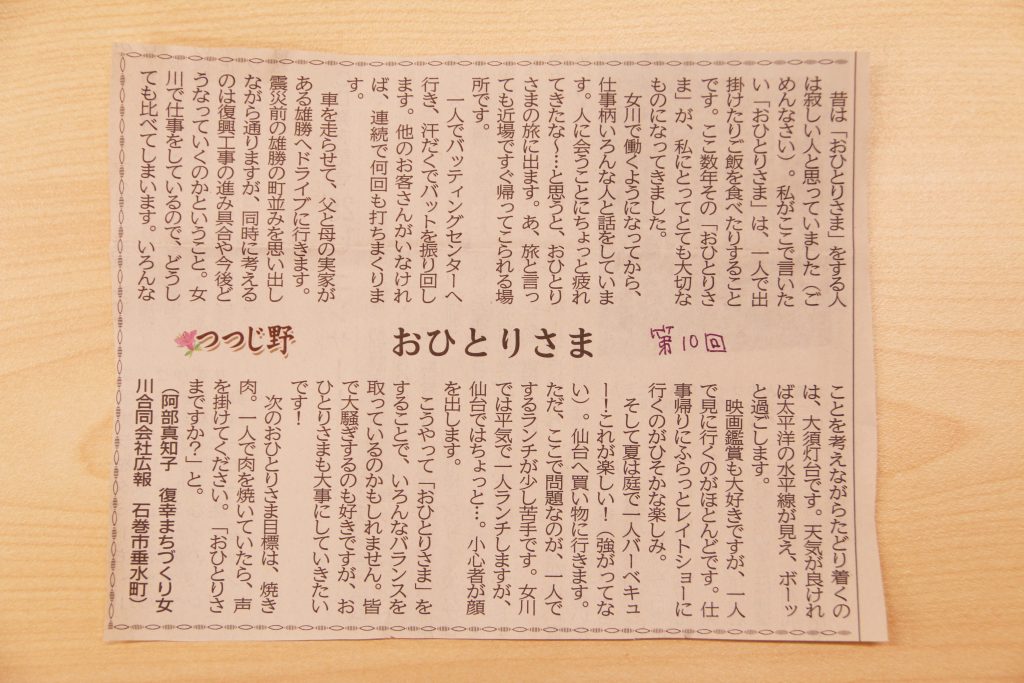 つつじ野
おひとりさま
第10回
昔は「おひとりさま」をする人
は寂しい人と思っていました（ご
めんなさい）。私がここで言いた
い「おひとりさま」は、一人で出
掛けたりご飯を食べたりすること
です。ここ数年その「おひとりさ
ま」が、私にとってとても大切な
ものになってきました。
女川で働くようになってから、
仕事柄いろんな人と話をしていま
す。人に会うことにちょっと疲れ
てきたな～…と思うと、おひとり
さまの旅に出ます。あ、旅と言っ
ても近場ですぐ帰ってこられる場
所です。
一人でバッティングセンターへ
行き、汗だくでバットを振り回し
ます。他のお客さんがいなけれ
ば、連続で何回も打ちまくりま
す。
車を走らせて、父と母の実家が
ある雄勝へドライブに行きます。
震災前の雄勝の町並みを思い出し
ながら通りますが、同時に考える
のは復興工事の進み具合や今後ど
うなっていくのかということ。女
川で仕事をしているので、どうし
ても比べてしまいます。いろんな
ことを考えながらたどり着くの
は、大須灯台です。天気が良けれ
ば太平洋の水平線が見え、ボーッ
と過ごします。
映画鑑賞も大好きですが、一人
で見に行くのがほとんどです。仕
事帰りにふらっとレイトショーに
行くのがひそかな楽しみ。
そして夏は庭で一人バーベキュ
ー！これが楽しい！（強がってな
い）。仙台へ買い物に行きます。
ただ、ここで問題なのが、一人で
するランチが少し苦手です。女川
では平気で一人ランチしますが、
仙台ではちょっと…。小心者が顔
を出します。
こうやって「おひとりさま」を
することで、いろんなバランスを
取っているのかもしれません。皆
で大騒ぎするのも好きですが、お
ひとりさまも大事にしていきたい
です！
次のおひとりさま目標は、焼き
肉。一人で肉を焼いていたら、声
を掛けてください。「おひとりさ
まですか？」と。
（阿部真知子　復幸まちづくり女
川合同会社広報　石巻市垂水町）